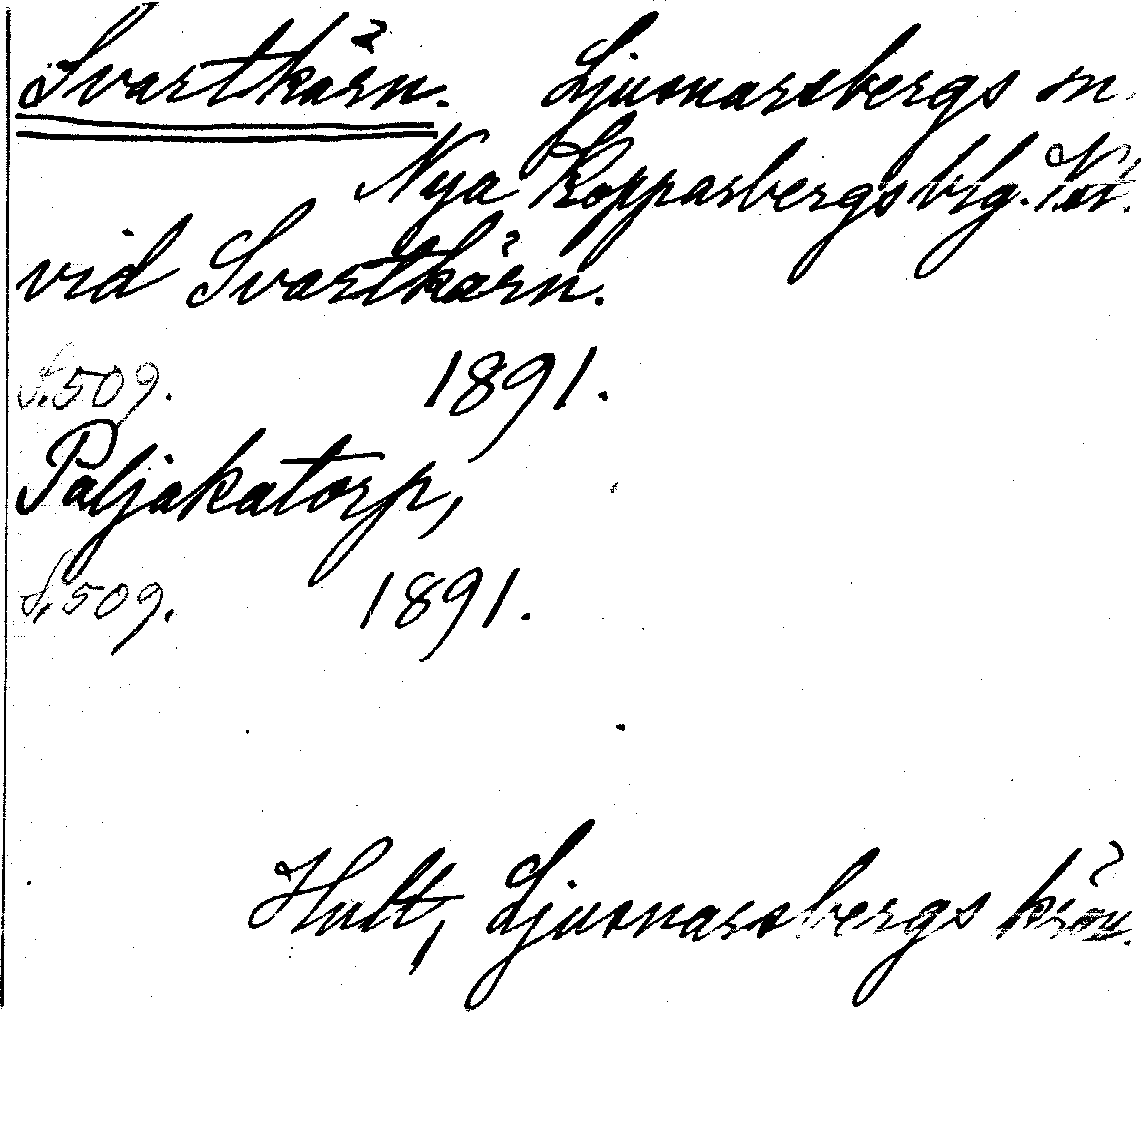 Svartkärn. Ljusnarsbergs sn
Nya Kopparbergs blg.
vid Svartkärn.
S. 509. 1891.
Paljakatorp,
S. 509. 1891.
Hult, Ljusnarsbergs krön.